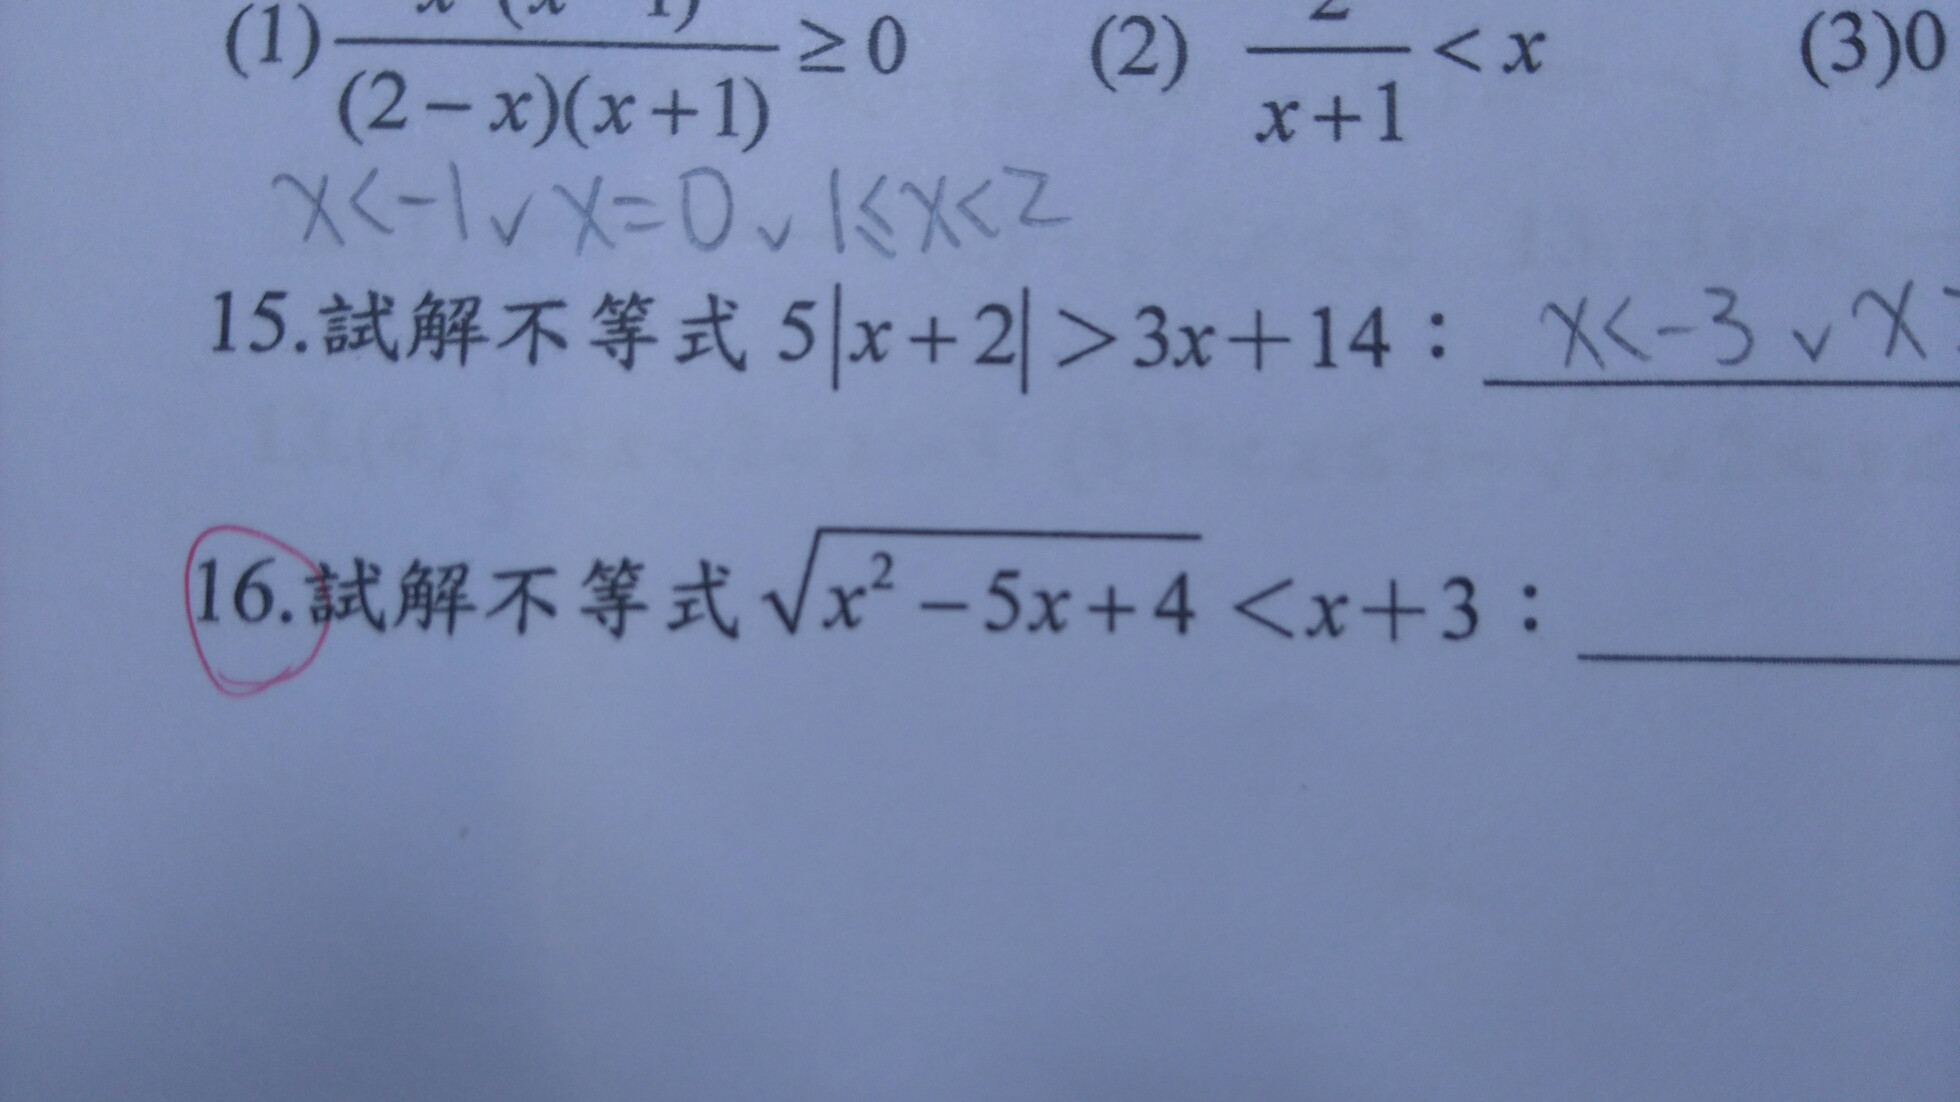 (1) (x 1)/((2-x)(x+1)) ≥ 0 (2) 2/(x+1) < x (3)0
x<-1 ∨ x=0 ∨ 1≤x<2
15.試解不等式 5|x+2| > 3x+14： x<-3 ∨ x
16.試解不等式 √(x²-5x+4) < x+3：